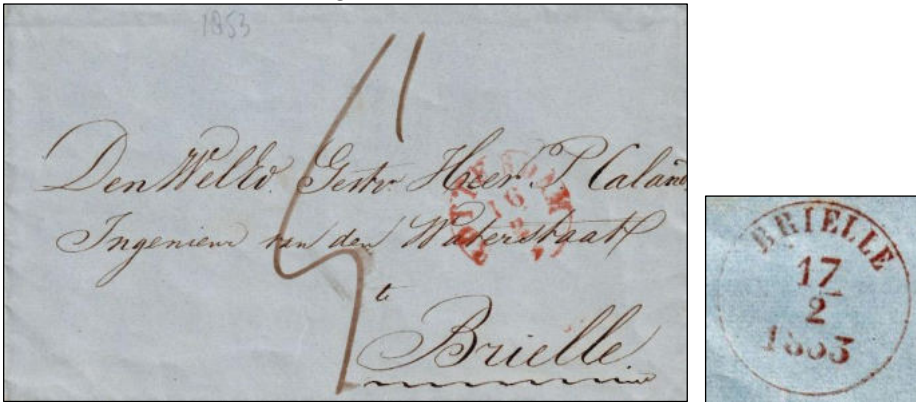 1853
Den WelEd. Gestr. Heer P. Caland
Ingenieur van den Waterstaat
te
Brielle
ROTTERDAM
16
2
BRIELLE
17
2
1853